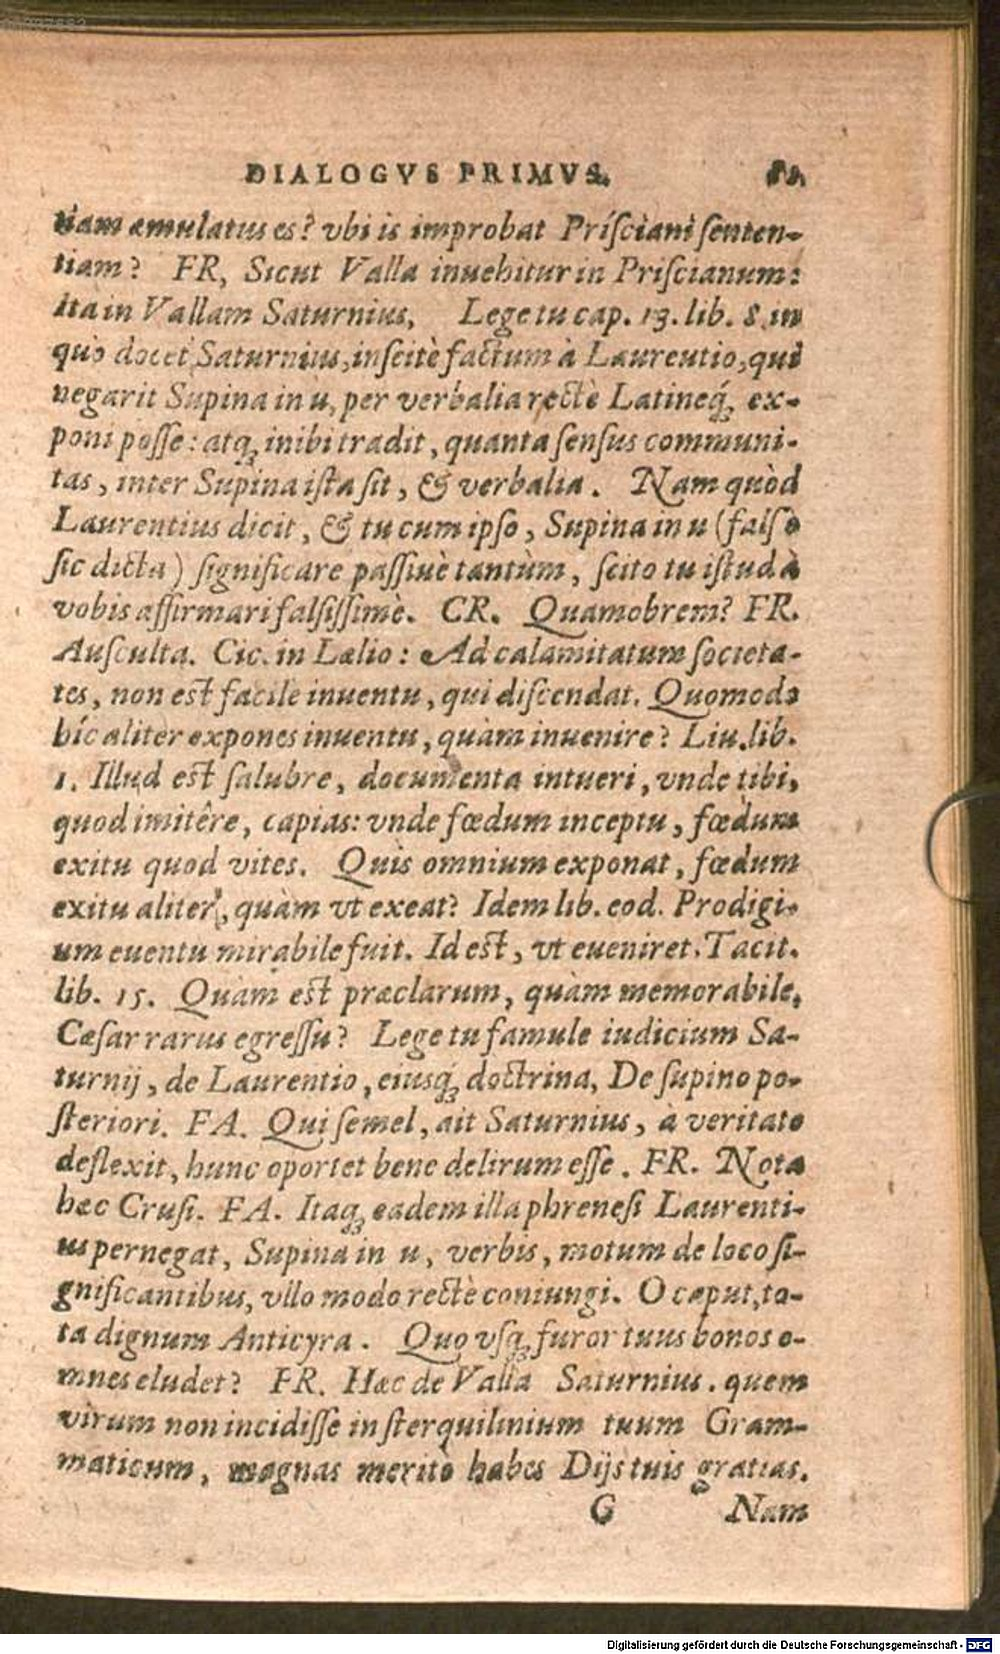 DIALOGVS PRIMVS.
tiam æmulatus es? vbi is improbat Prisciani senten-
tiam? FR, Sicut Valla inuehitur in Priscianum:
ita in Vallam Saturnius, Lege tu cap. 13. lib. 8. in
quo docet Saturnius, inscitè factum à Laurentio, qui
negarit Supina in u, per verbalia rectè Latineq́ꝫ ex-
poni posse: atqꝫ inibi tradit, quanta sensus communi-
tas, inter Supina ista sit, & verbalia. Nam quòd
Laurentius dicit, & tu cum ipso, Supina in u (falsò
sic dicta) significare passiuè tantùm, scito tu istud à
vobis affirmari falsissimè. CR. Quamobrem? FR.
Ausculta. Cic. in Lælio: Ad calamitatum societa-
tes, non est facile inuentu, qui discendat. Quomodo
hîc aliter expones inuentu, quàm inuenire? Liu. lib.
1. Illud est salubre, documenta intueri, vnde tibi,
quod imitêre, capias: vnde fœdum inceptu, fœdum
exitu quod vites. Quis omnium exponat, fœdum
exitu aliter, quàm vt exeat? Idem lib. eod. Prodigi-
um euentu mirabile fuit. Id est, vt eueniret. Tacit.
lib. 15. Quàm est præclarum, quàm memorabile,
Cæsar rarus egressu? Lege tu famule iudicium Sa-
turnij, de Laurentio, eiusq́ꝫ doctrina, De supino po-
steriori. FA. Qui semel, ait Saturnius, à veritate
deflexit, hunc oportet bene delirum esse. FR. Nota
hæc Crusi. FA. Itaqꝫ eadem illa phrenesi Laurenti-
us pernegat, Supina in u, verbis, motum de loco si-
gnificantibus, vllo modo rectè coniungi. O caput, to-
ta dignum Anticyra. Quo vsqꝫ furor tuus bonos o-
mnes eludet? FR. Hæc de Valla Saturnius. quem
virum non incidisse in sterquilinium tuum Gram-
maticum, magnas merito habes Dijs tuis gratias.
G Nam
Digitalisierung gefördert durch die Deutsche Forschungsgemeinschaft - DFG